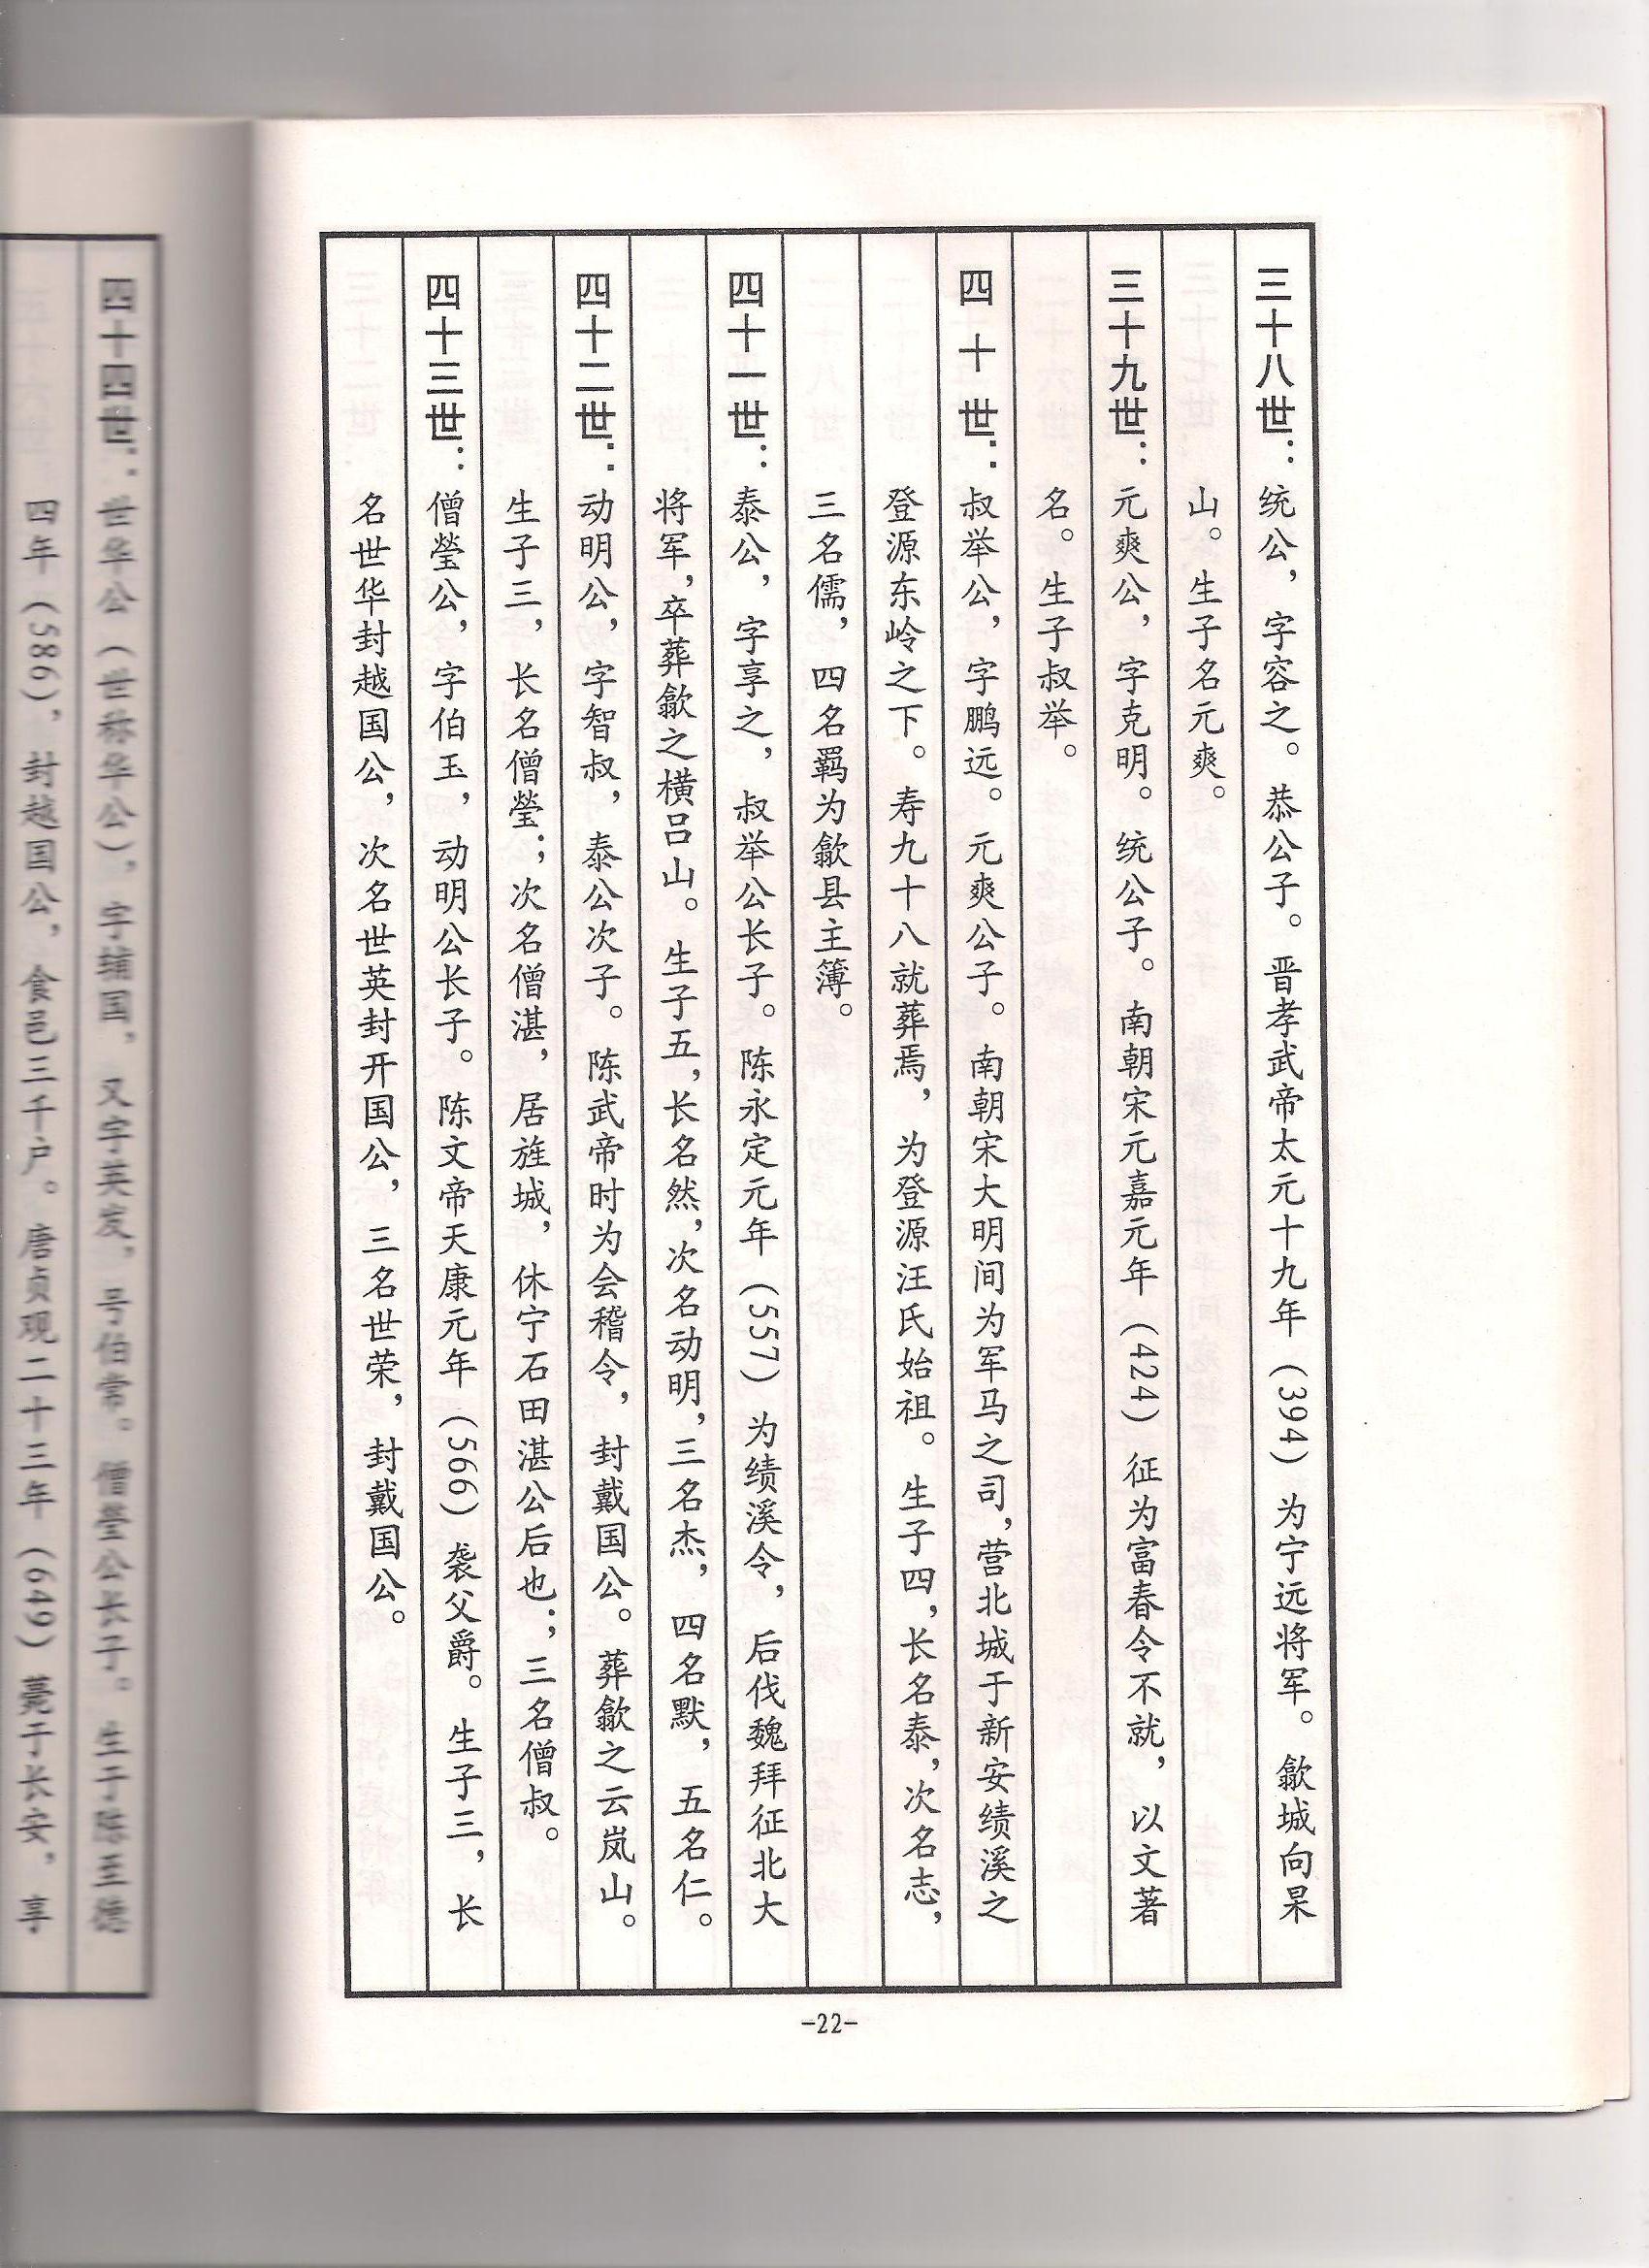 三十八世：统公，字容之。恭公子。晋孝武帝太元十九年（394）为宁远将军。歙城向杲
山。生子名元爽。
三十九世：元爽公，字克明。统公子。南朝宋元嘉元年（424）征为富春令不就，以文著
名。生子叔举。
四十世：叔举公，字鹏远。元爽公子。南朝宋大明间为军马之司，营北城于新安绩溪之
登源东岭之下。寿九十八就葬焉，为登源汪氏始祖。生子四，长名泰，次名志，
三名儒，四名羁为歙县主簿。
四十一世：泰公，字享之，叔举公长子。陈永定元年（557）为绩溪令，后伐魏拜征北大
将军，卒葬歙之横吕山。生子五，长名然，次名动明，三名杰，四名默，五名仁。
四十二世：动明公，字智叔，泰公次子。陈武帝时为会稽令，封戴国公。葬歙之云岚山。
生子三，长名僧瑩；次名僧湛，居旌城，休宁石田湛公后也；三名僧叔。
四十三世：僧瑩公，字伯玉，动明公长子。陈文帝天康元年（566）袭父爵。生子三，长
名世华封越国公，次名世英封开国公，三名世荣，封戴国公。
-22-
四十四世：世华公（世称华公），字辅国，又字英发，号伯常。僧瑩公长子。生于陈至德
四年（586），封越国公，食邑三千户。唐贞观二十三年（649）薨于长安，享